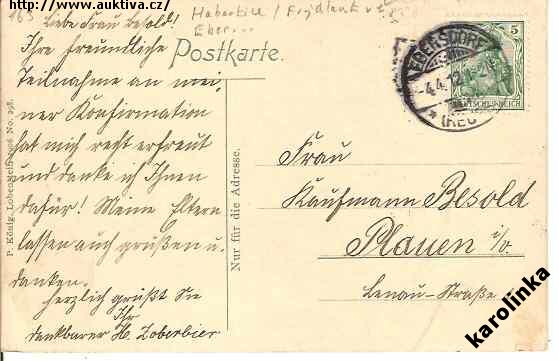 http://www.auktiva.cz/
163
Liebe Frau Besold!
Ihre freundliche
Teilnahme an mei-
ner Konfirmation
hat mich recht erfreut
und danke ich Ihnen
dafür! Meine Eltern
lassen auch grüßen u.
danken.
Herzlich grüßt Sie
Ihr
dankbarer H. Zoberbier
Habartice / Frýdlant v
Eber...
Postkarte.
P. König, Lobenstein 1906 No. 298.
Nur für die Adresse.
EBERSDORF
4.4.12
(REU
5
DEUTSCHES REICH
Frau
Kaufmann Besold
Plauen i/v.
Lenau-Straße
karolinka